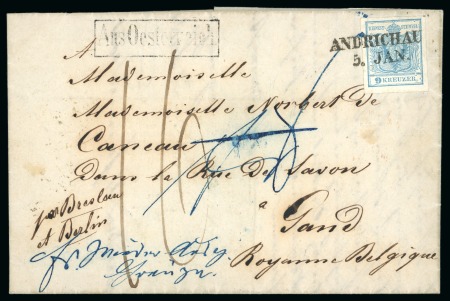 Aus Oesterreich
ANDRICHAU
5. JAN.
9 KREUZER
A
Mademoiselle
Mademoiselle Norbert de
Caneau
Dans la Rue de Savon
à
Gand
Royaume Belgique
per Breslau
et Berlin
16